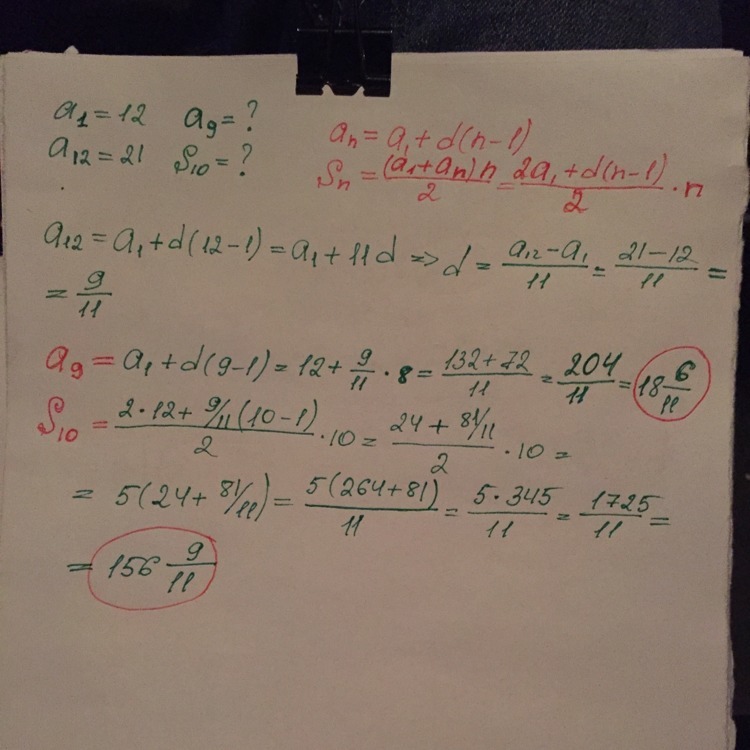 a₁ = 12 a₉ = ?
a₁₂ = 21 S₁₀ = ?
aₙ = a₁ + d(n-1)
Sₙ = (a₁+aₙ)n/2 = 2a₁+d(n-1)/2 · n
a₁₂ = a₁ + d(12-1) = a₁ + 11d => d = a₁₂-a₁/11 = 21-12/11 =
= 9/11
a₉ = a₁ + d(9-1) = 12 + 9/11 · 8 = 132+72/11 = 204/11 = 18 6/11
S₁₀ = 2·12 + 9/11(10-1)/2 · 10 = 24 + 81/11/2 · 10 =
= 5(24 + 81/11) = 5(264+81)/11 = 5·345/11 = 1725/11 =
= 156 9/11